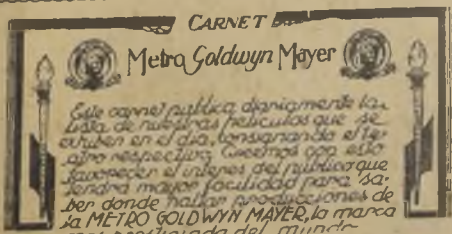 CARNET
Metro Goldwyn Mayer
Este carnet publica diariamente la
lista de nuestras peliculas que se
exhiben en el dia, consignando el te-
atro respectivo. Creemos con esto
favorecer el interes del publico que
tendrá mayor facilidad para sa-
ber donde hallar producciones de
la METRO GOLDWYN MAYER, la marca
del mundo